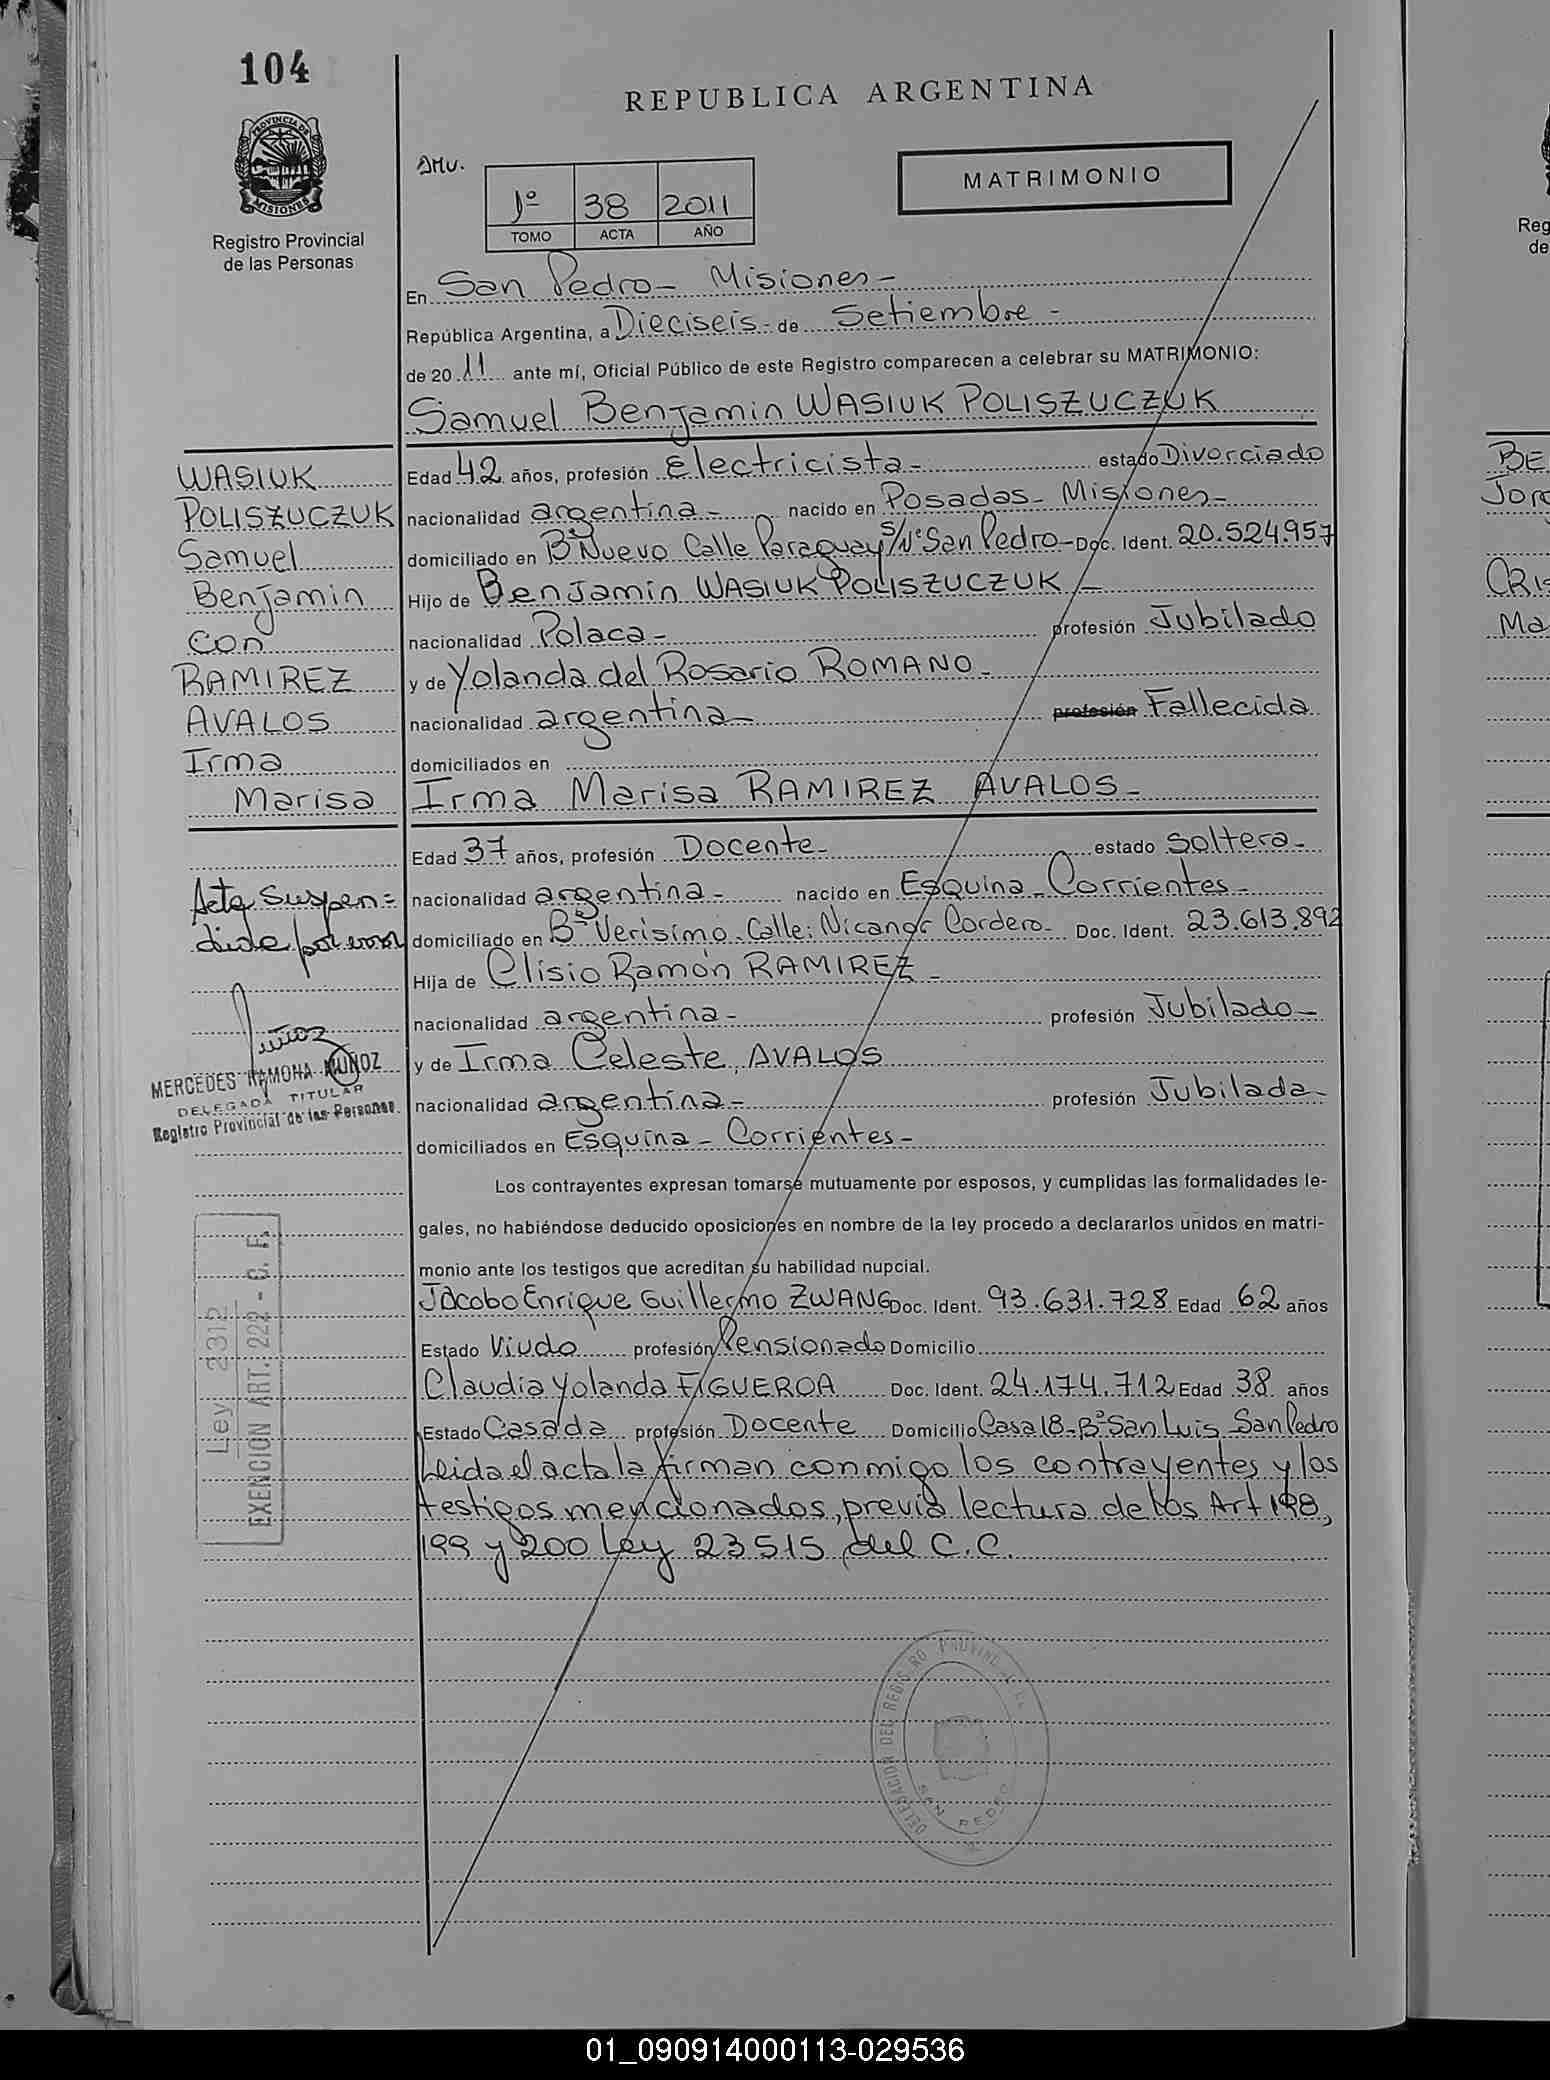 104
REPUBLICA ARGENTINA
PROVINCIA DE MISIONES
Registro Provincial
de las Personas
MATRIMONIO
1º 38 2011
TOMO ACTA AÑO
En San Pedro - Misiones -
República Argentina, a Dieciseis - de Setiembre -
de 2011 ante mí, Oficial Público de este Registro comparecen a celebrar su MATRIMONIO:
Samuel Benjamin WASIUK POLISZUCZUK
WASIUK
POLISZUCZUK
Samuel
Benjamin
con
RAMIREZ
AVALOS
Irma
Marisa
Edad 42 años, profesión Electricista - estado Divorciado
nacionalidad argentina - nacido en Posadas - Misiones -
domiciliado en Bº Nuevo Calle Paraguay s/Nº San Pedro - Doc. Ident. 20.524.957
Hijo de Benjamin WASIUK POLISZUCZUK -
nacionalidad Polaca - profesión Jubilado
y de Yolanda del Rosario ROMANO -
nacionalidad argentina - profesión Fallecida
domiciliados en
Irma Marisa RAMIREZ AVALOS -
Edad 37 años, profesión Docente - estado Soltera -
nacionalidad argentina - nacido en Esquina - Corrientes -
domiciliado en Bº Verisimo Calle: Nicanor Cordero - Doc. Ident. 23.613.892
Hija de Clisio Ramón RAMIREZ -
nacionalidad argentina - profesión Jubilado -
y de Irma Celeste, AVALOS
nacionalidad argentina - profesión Jubilada -
domiciliados en Esquina - Corrientes -
Acta Suspen=
dida por error
MERCEDES RAMONA MUÑOZ
DELEGADA TITULAR
Registro Provincial de las Personas
Los contrayentes expresan tomarse mutuamente por esposos, y cumplidas las formalidades le-
gales, no habiéndose deducido oposiciones en nombre de la ley procedo a declararlos unidos en matri-
monio ante los testigos que acreditan su habilidad nupcial.
Jacobo Enrique Guillermo ZWANG Doc. Ident. 93.631.728 Edad 62 años
Estado Viudo profesión Pensionado Domicilio
Claudia Yolanda FIGUEROA Doc. Ident. 24.174.712 Edad 38 años
Estado Casada profesión Docente Domicilio Casa 18 - Bº San Luis San Pedro
Leida el acta la firman conmigo los contrayentes y los
testigos mencionados, previa lectura de los Art 198,
199 y 200 Ley 23515 del C.C.
Ley 2312
EXENCION ART. 222 - C. F.
DELEGACION DEL REGISTRO PROVINCIAL
SAN PEDRO
01_090914000113-029536